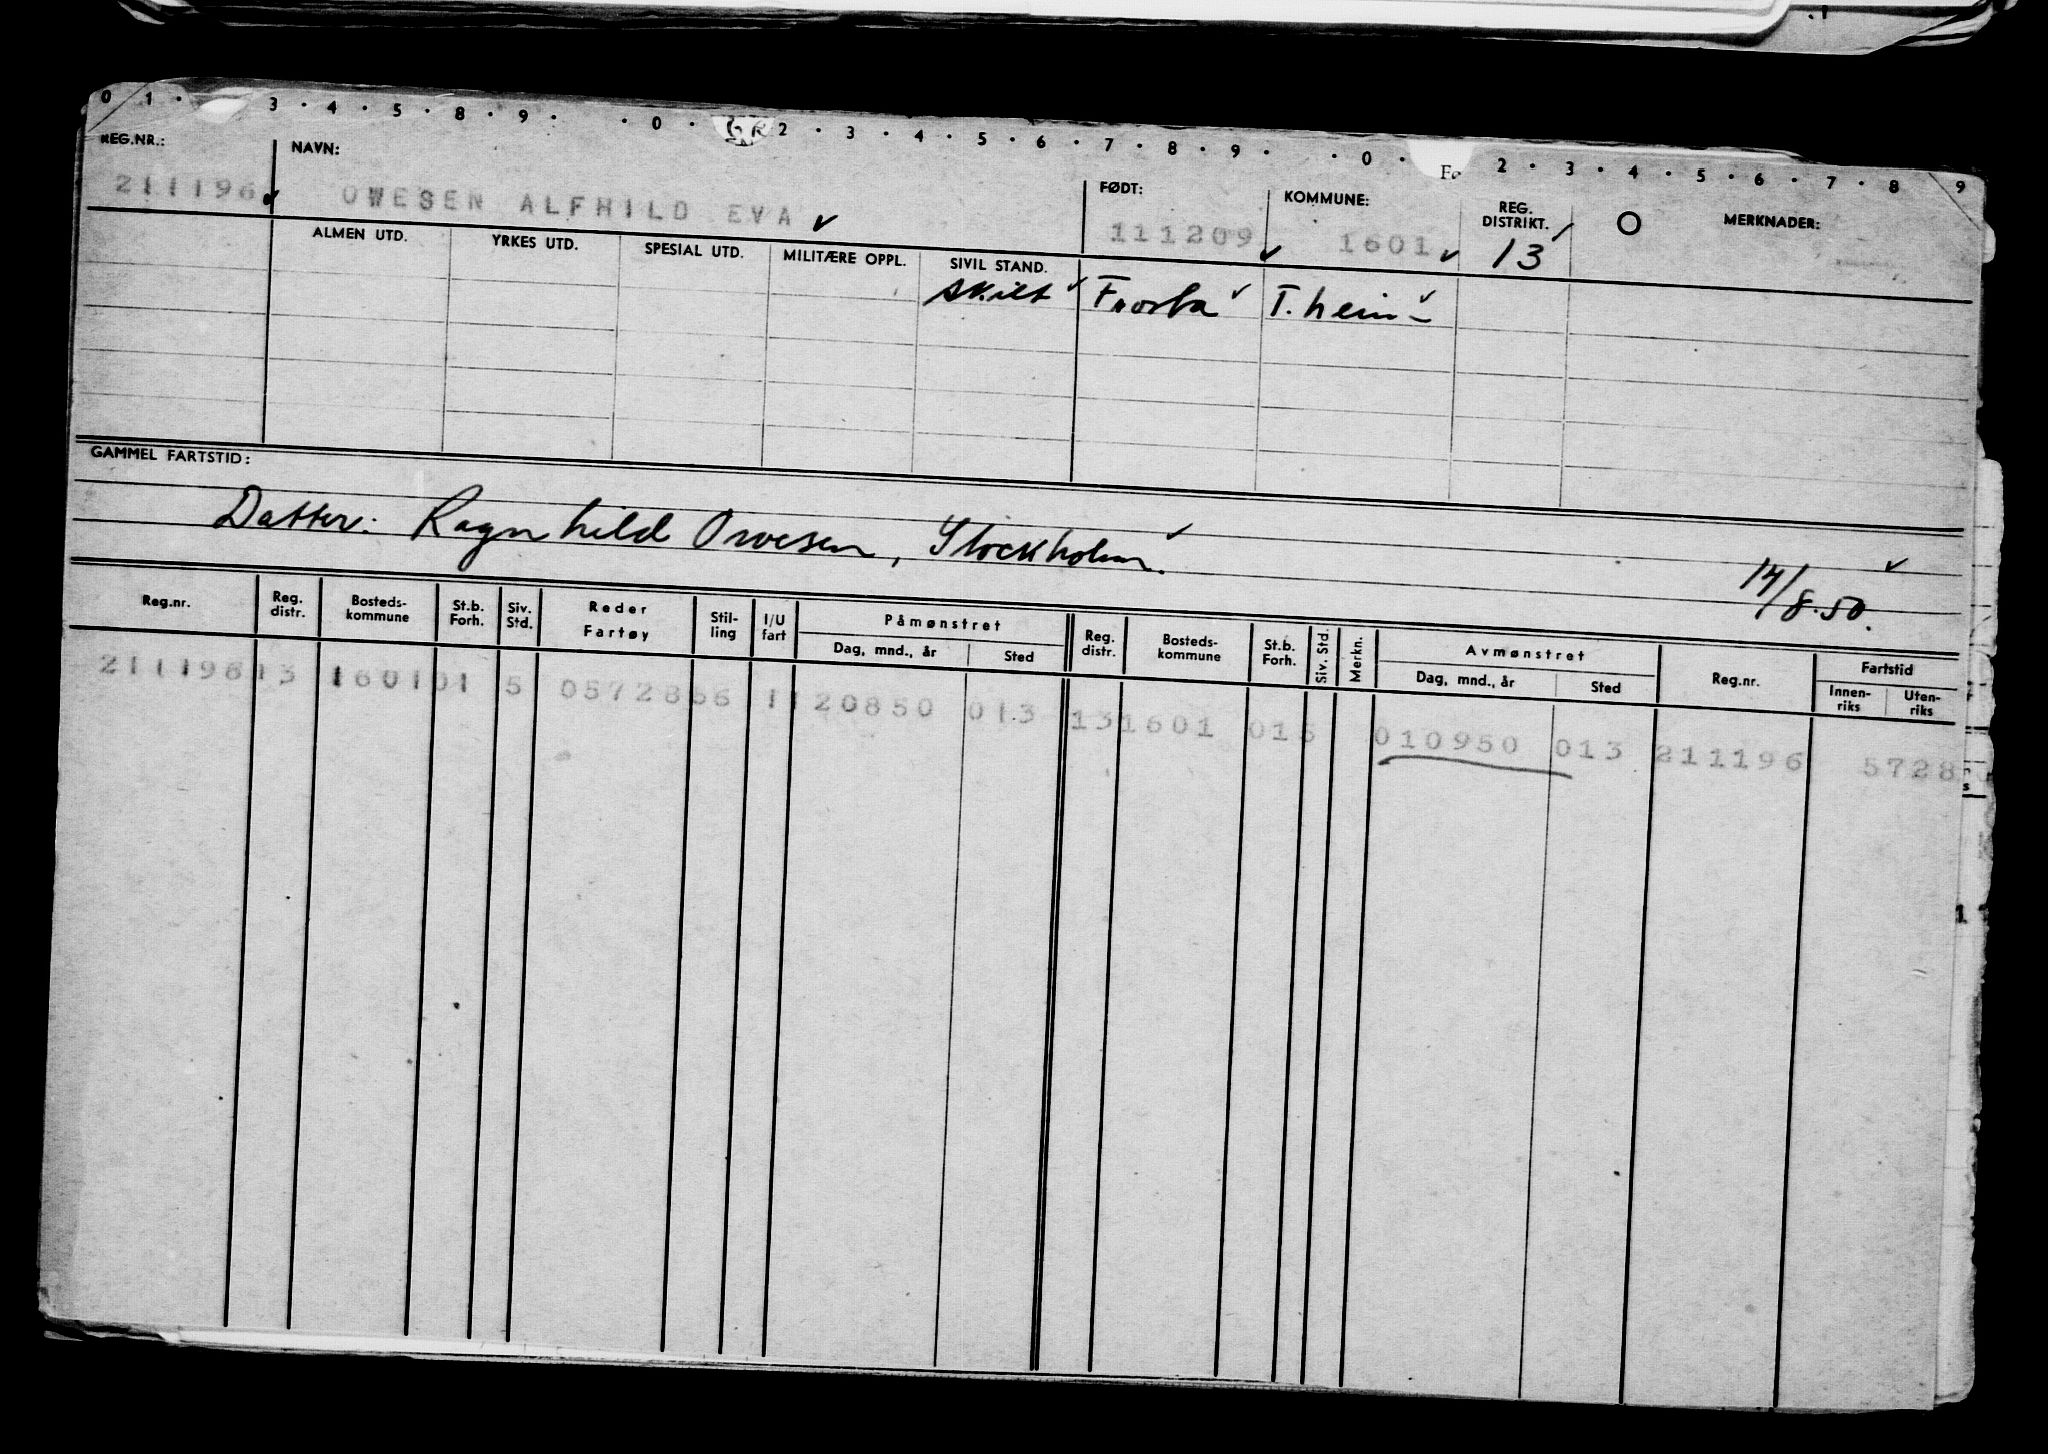 0 1 · 3 · 4 · 5 · 8 · 9 · · 0 · GR 2 · 3 · 4 · 5 · 6 · 7 · 8 · 9 · · 0 · Fo 2 · 3 · 4 · 5 · 6 · 7 · 8 9
REG.NR.: NAVN: FØDT: KOMMUNE: REG. DISTRIKT. MERKNADER:
211196 OWESEN ALFHILD EVA 111209 1601 13
ALMEN UTD. YRKES UTD. SPESIAL UTD. MILITÆRE OPPL. SIVIL STAND.
skilt Frosta T.heim
GAMMEL FARTSTID:
Datter: Ragnhild Owesen, Stockholm.
14/8.50.
Reg.nr. Reg. distr. Bosteds-kommune St.b. Forh. Siv. Std. Reder Fartøy Stil-ling I/U fart Påmønstret Dag, mnd., år Sted Reg. distr. Bosteds-kommune St.b. Forh. Siv. Std. Merkn. Avmønstret Dag, mnd., år Sted Reg.nr. Fartstid Innen-riks Uten-riks
211196 13 1601 01 5 0572866 1 120850 013 13 1601 015 010950 013 211196 5728